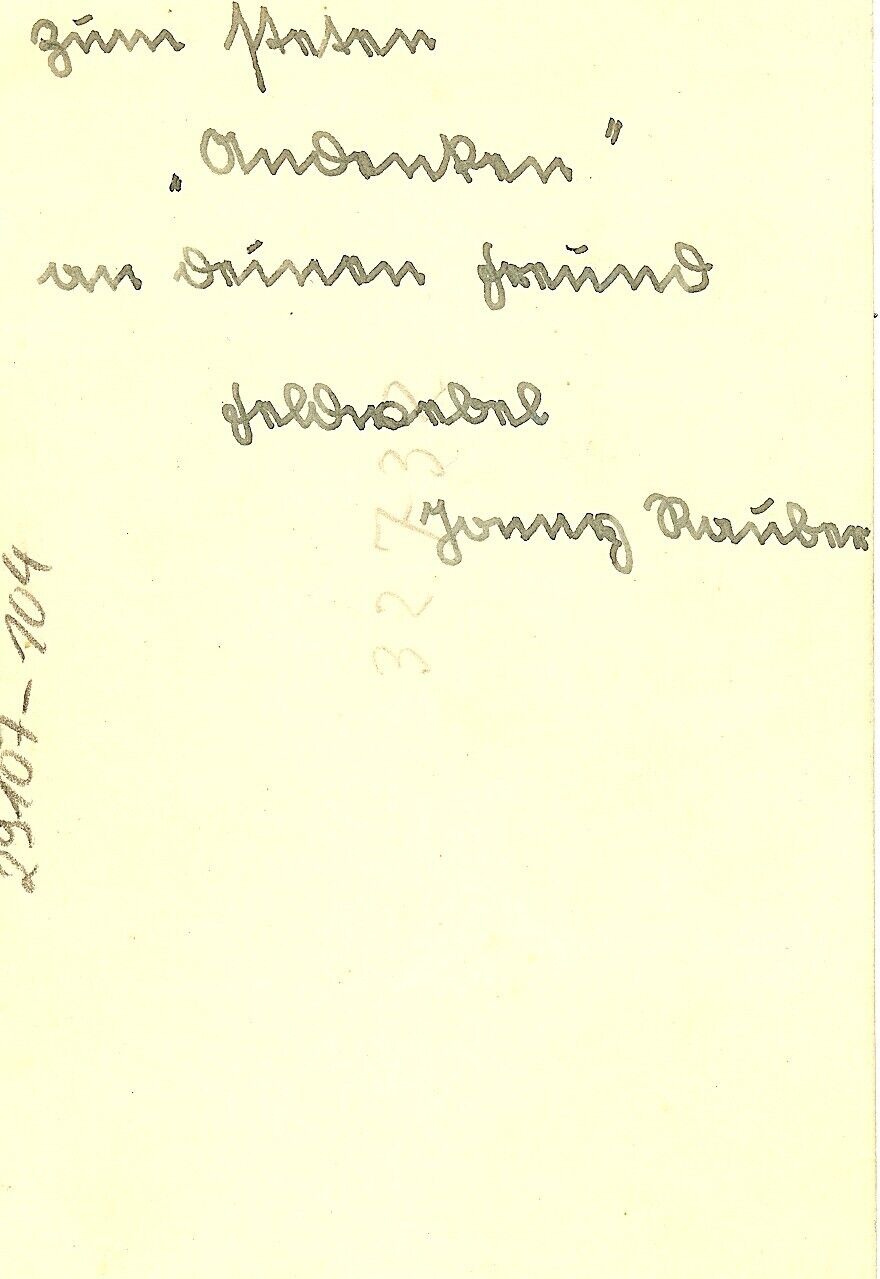 zum steten
„Andenken"
an deinen Freund
Feldwebel
Jonny Rauber
29107-104